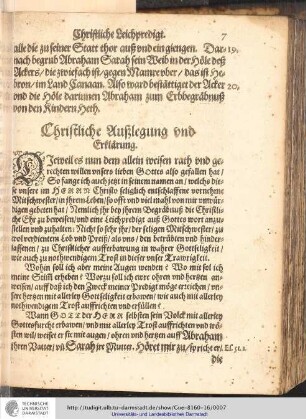 Christliche Leichpredigt. 7
alle die zu seiner Statt thor auß vnd ein giengen. Dar- 19.
nach begrub Abraham Sarah sein Weib in der Höle deß
Ackers/ die zwiefach ist/ gegen Mamre vber/ das ist He-
bron/ im Land Canaan. Also ward bestättiget der Acker 20.
vnd die Höle darinnen Abraham zum Erbbegräbnuß
von den Kindern Heth.
Christliche Außlegung vnd
Erklärung.
Jeweil es nun dem allein weisen rath vnd ge-
rechten willen vnsers lieben Gottes also gefallen hat/
So fang ich auch jetzt in seinem namen an/ welchs die-
se vnsere im HERRN Christo seliglich entschlaffene vornehme
Mitschwester/ in jhrem Leben/ so offt vnd viel mahl von mir
begehret hat/ Nemlich jhr bey jhrem Begräbnuß die Christli-
che Ehr zu beweisen/ vnd eine Leichpredigt auß GOttes Wort anzu-
stellen vnd zuhalten: Nicht so sehr jhr/ der seligen Mitschwester/ zu
wolverdientem Lob vnd Preiß/ als vns/ den betrübten vnd hinder-
lassenen/ zu Christlicher aufferbawung in wahrer Gottseligkeit/
wie auch zu nothwendigem Trost in dieser vnser Trawrigkeit.
Wohan soll ich aber meine Augen wenden? Wo mit sol ich
meine Stim̃ erheben? Worzu soll ich ewre ohren vnd hertzen an-
weisen/ auff daß ich den Zweck meiner Predigt möge erreichen/ vn-
sere hertzen mit allerley Gottseligkeit erbawen/ wie auch mit allerley
nothwendigem Trost auffrichten vnd erfüllen?
Wann GOTT der HERR selbsten sein Volck mit allerley
Gottesfurcht erbawen/ vnd mit allerley Trost auffrichten vnd trö-
sten wil/ weiset er sie mit augen/ ohren vnd hertzen auff Abraham
jhren Vatter/ vñ Sarah jre Mutter. Höret mir zu/ spricht er/ Es. 51. 1.
die
TECHNISCHE
UNIVERSITÄT
DARMSTADT
http://tudigit.ulb.tu-darmstadt.de/show/Gue-8160-16/0007
Universitäts- und Landesbibliothek Darmstadt